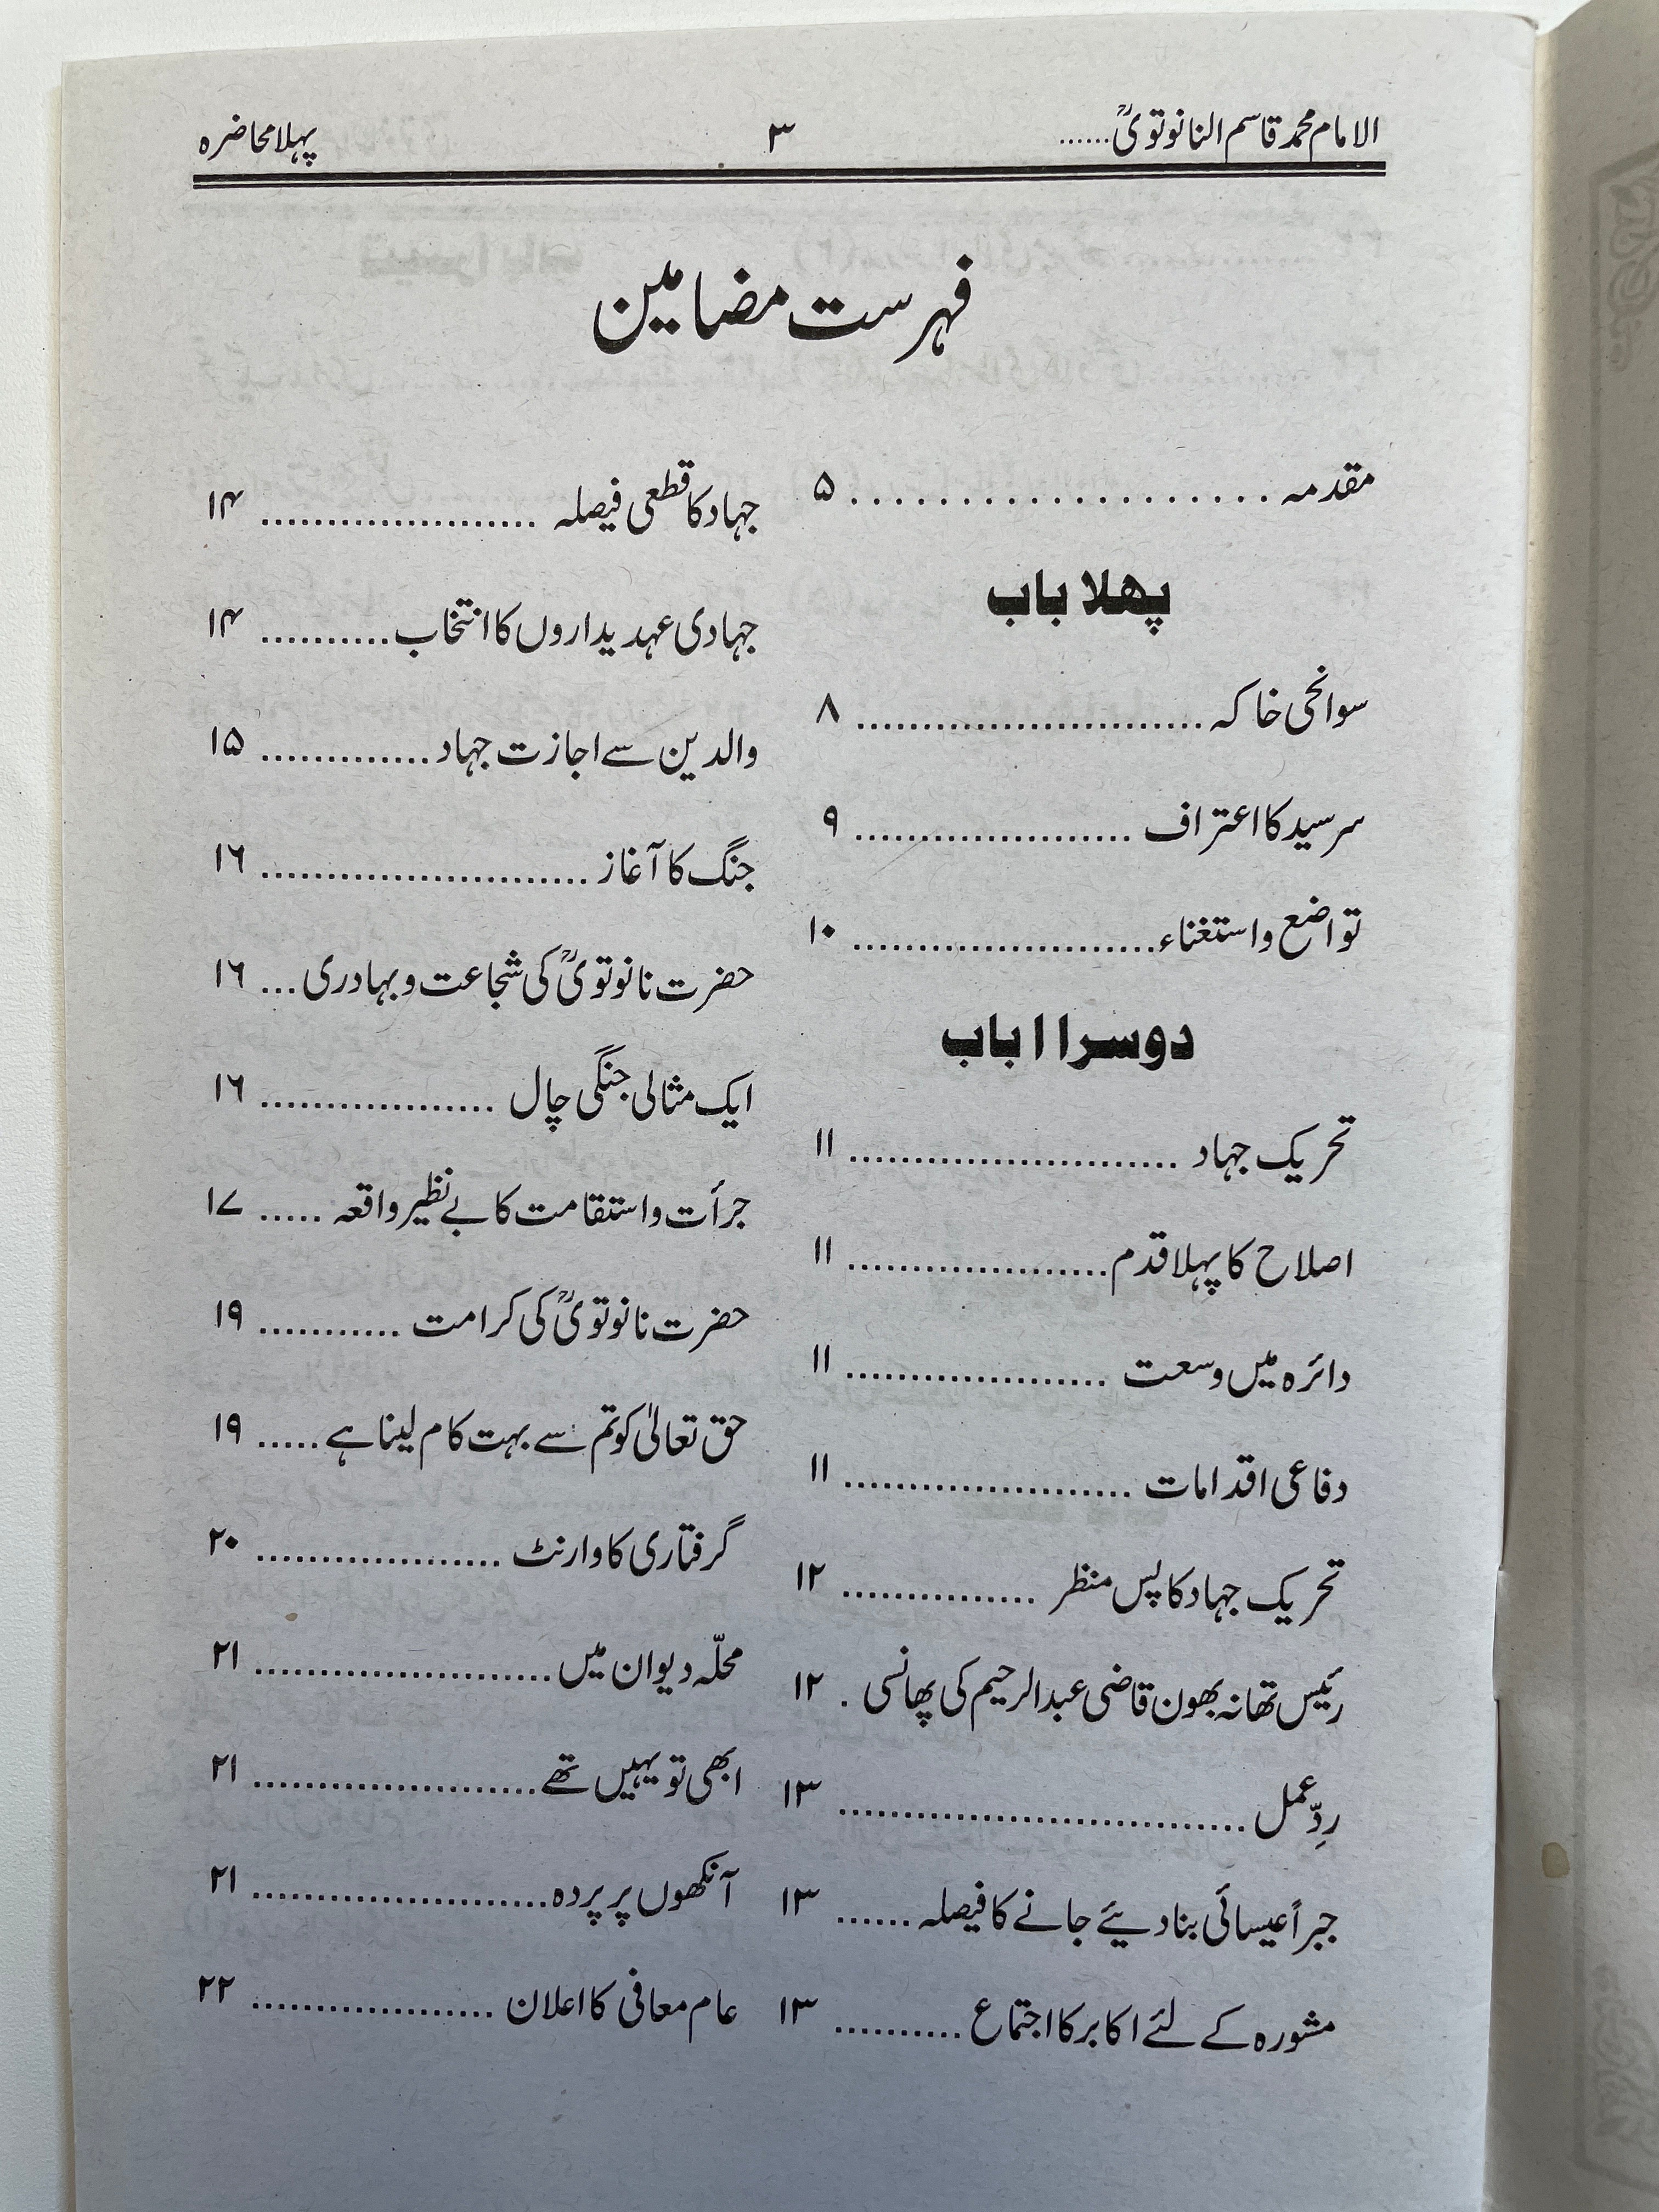 الامام محمد قاسم النانوتویؒ...... ۳ پہلا محاضرہ
فہرست مضامین
مقدمہ .................... ۵
پھلا باب
سوانحی خاکہ .......................... ۸
سرسید کا اعتراف ..................... ۹
تواضع و استغناء ....................... ۱۰
دوسرا ا باب
تحریک جہاد ......................... ۱۱
اصلاح کا پہلا قدم .................... ۱۱
دائرہ میں وسعت .................... ۱۱
دفاعی اقدامات ...................... ۱۱
تحریک جہاد کا پس منظر ............... ۱۲
رئیس تھانہ بھون قاضی عبدالرحیم کی پھانسی . ۱۲
ردِّ عمل ............................... ۱۳
جبراً عیسائی بنا دیئے جانے کا فیصلہ ...... ۱۳
مشورہ کے لئے اکابر کا اجتماع .......... ۱۳
جہاد کا قطعی فیصلہ ..................... ۱۴
جہادی عہدیداروں کا انتخاب .......... ۱۴
والدین سے اجازت جہاد ............. ۱۵
جنگ کا آغاز ......................... ۱۶
حضرت نانوتویؒ کی شجاعت و بہادری ... ۱۶
ایک مثالی جنگی چال .................. ۱۶
جرأت و استقامت کا بے نظیر واقعہ ..... ۱۷
حضرت نانوتویؒ کی کرامت ........... ۱۹
حق تعالیٰ کو تم سے بہت کام لینا ہے ..... ۱۹
گرفتاری کا وارنٹ ................... ۲۰
محلّہ دیوان میں ....................... ۲۱
ابھی تو یہیں تھے ...................... ۲۱
آنکھوں پر پردہ ....................... ۲۱
عام معافی کا اعلان ................... ۲۲